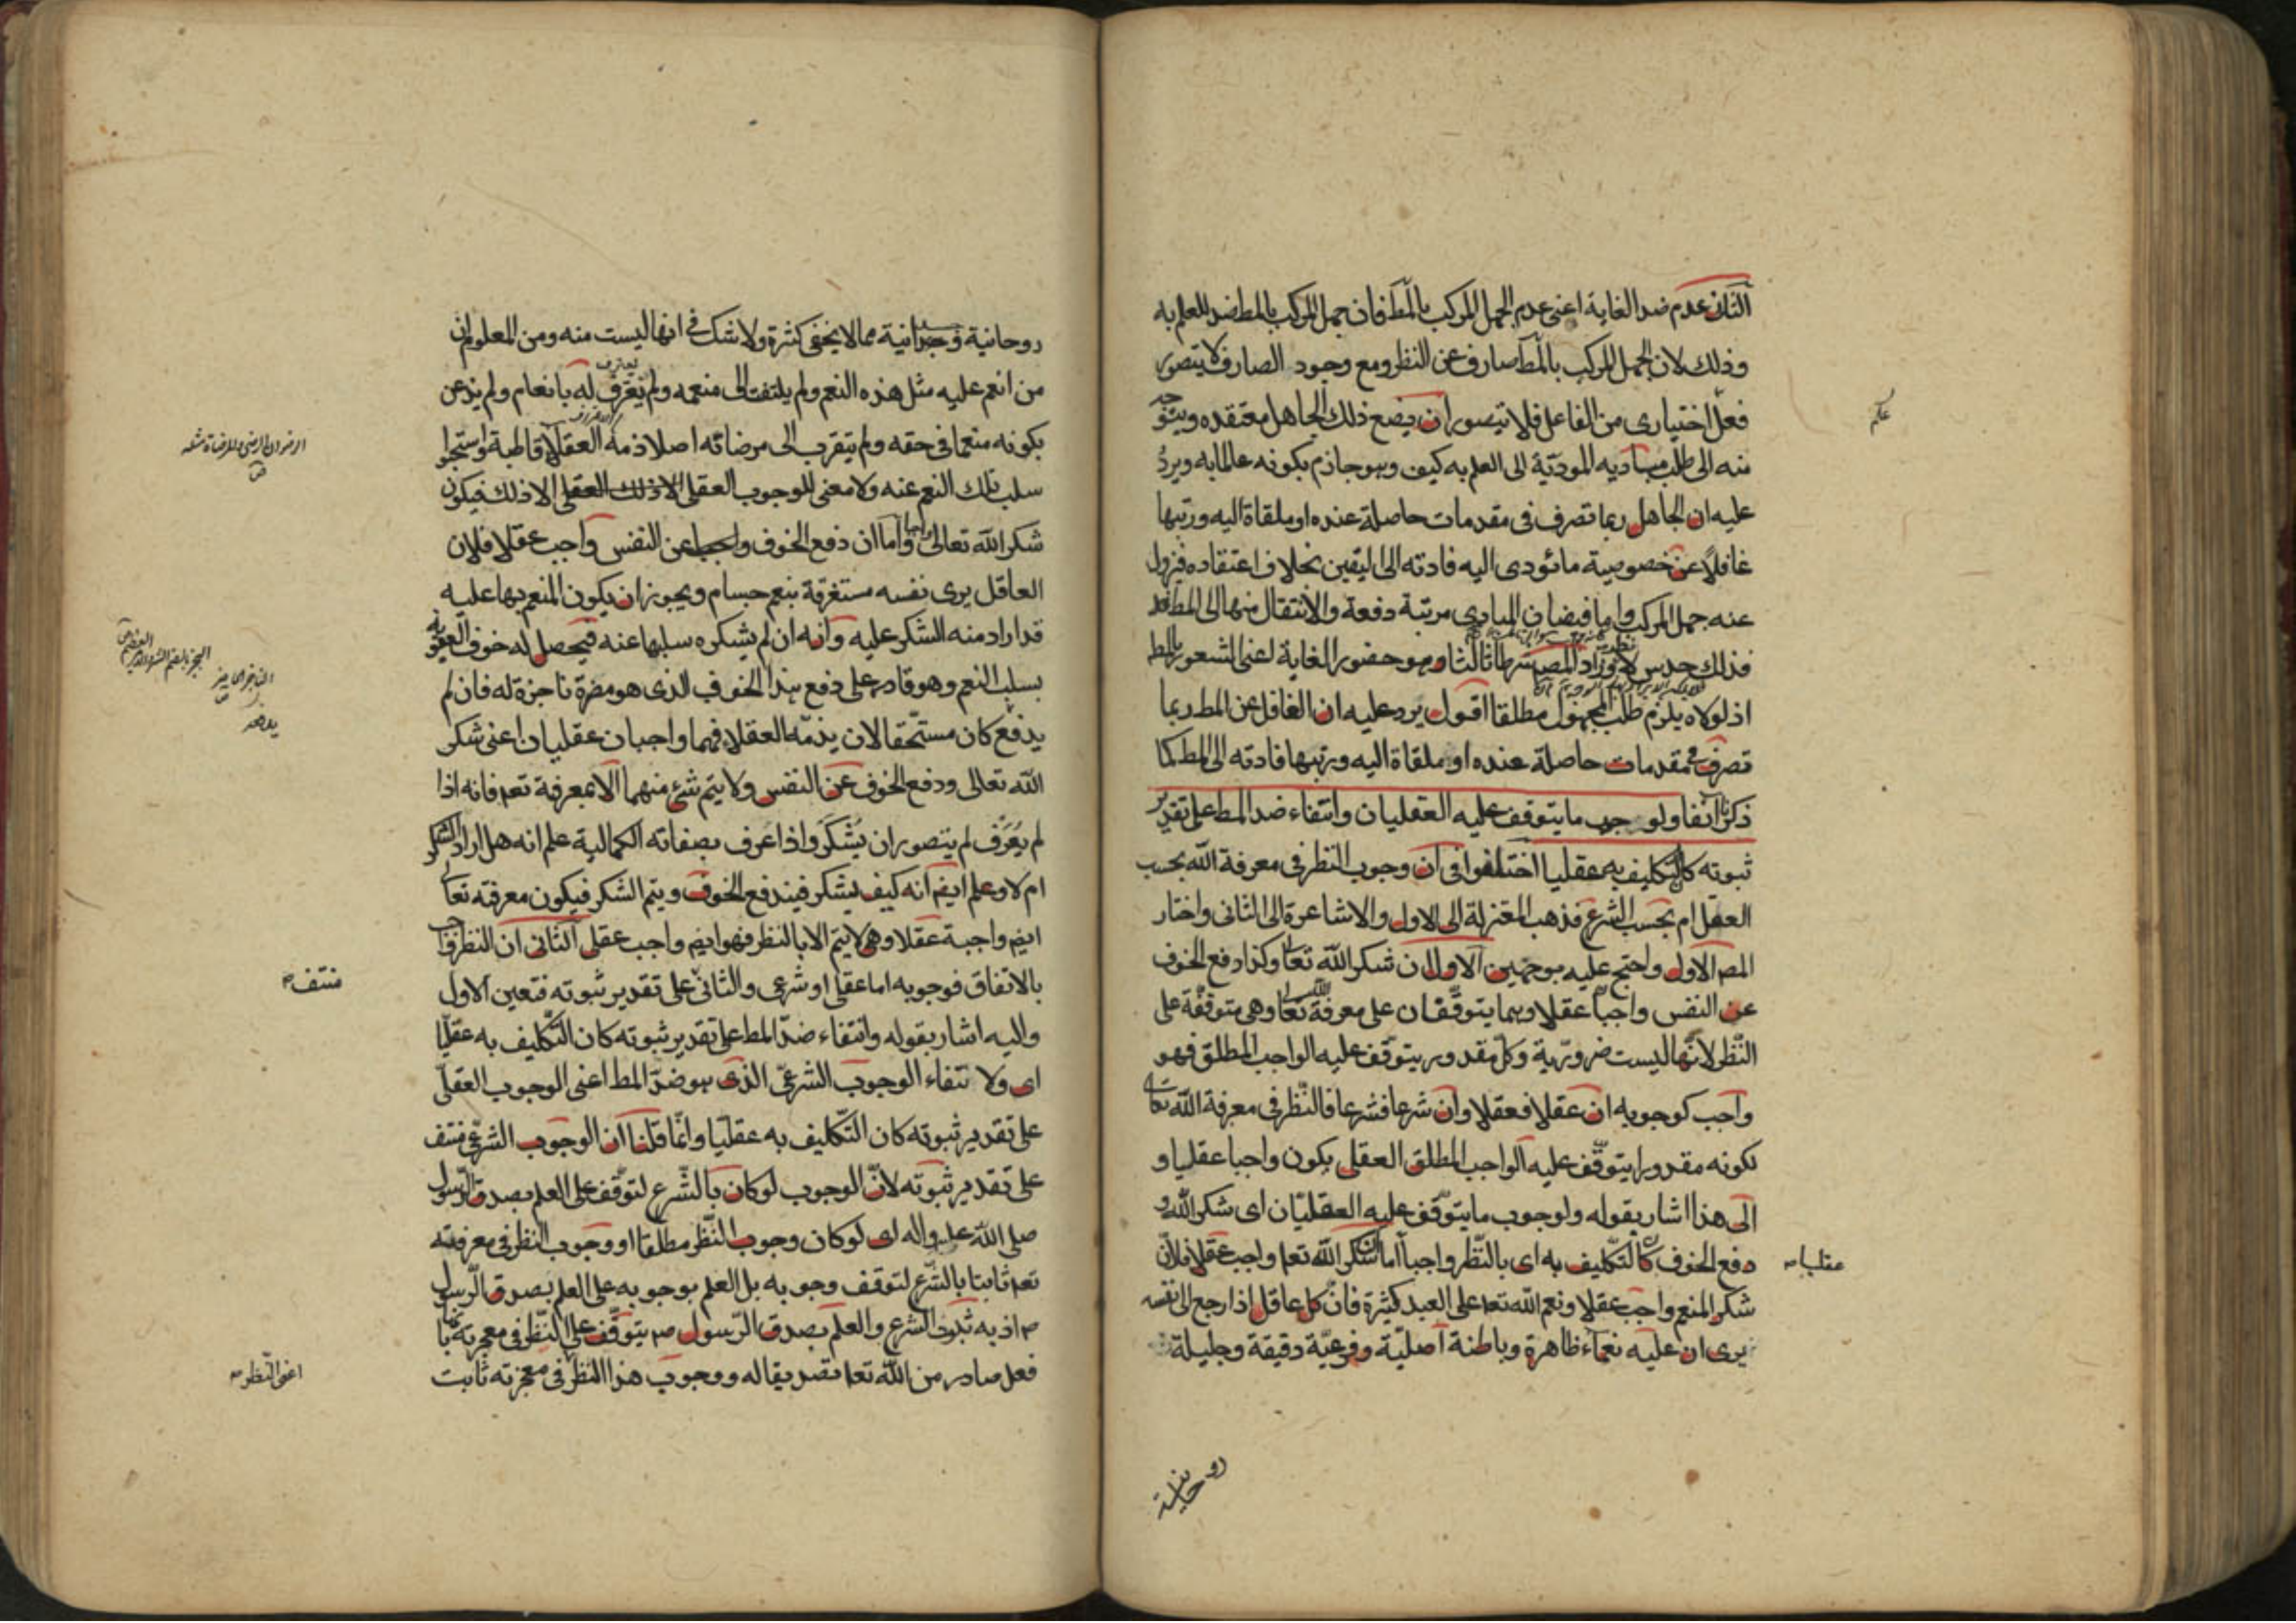 الثانى عدم ضد الغاية اعنى عدم الجهل المركب بالمط فان جهل المركب بالمط ضد للعلم به
وذلك لان الجهل المركب بالمط صارف عن النظر ومع وجود الصارف لا يتصور
فعل اختيارى من الفاعل فلا يتصور ان يضع ذلك الجاهل معتقده ويتوجه
منه الى طلب مباديه المودية الى العلم به كيف وهو جازم بكونه عالما به ويرد
عليه ان الجاهل ربما تصرف فى مقدمات حاصلة عنده او ملقاة اليه ورتبها
غافلا عن خصوصية ما تؤدى اليه فادته الى اليقين بخلاف اعتقاده فيزول
عنه جهل المركب واما فيضان المبادى مرتبة دفعة والانتقال منها الى المط
فذلك حدس لا نظر وزاد المص شرطا ثالثا وهو حضور الغاية اعنى الشعور بالمط
اذ لولاه يلزم طلب المجهول مطلقا اقول يرد عليه ان الغافل عن المط ربما
تصرف فى مقدمات حاصلة عنده او ملقاة اليه ورتبها فادته الى المط كما
ذكرنا آنفا ولوجوب ما يتوقف عليه العقليان وانتفاء ضد المط على تقدير
ثبوته كان التكليف به عقليا اختلفوا فى ان وجوب النظر فى معرفة الله بحسب
العقل ام بحسب الشرع فذهب المعتزلة الى الاول والاشاعرة الى الثانى واختار
المص الاول واحتج عليه بوجهين الاول ان شكر الله تعا وكذا دفع الخوف
عن النفس واجبا عقلا وهما يتوقفان على معرفة الله تعا وهى متوقفة على
النظر لانها ليست ضرورية وكل مقدور يتوقف عليه الواجب المطلق فهو
واجب كوجوبه ان عقلا فعقلا وان شرعا فشرعا فالنظر فى معرفة الله تعا
لكونه مقدورا يتوقف عليه الواجب المطلق العقلى يكون واجبا عقليا و
الى هذا اشار بقوله ولوجوب ما يتوقف عليه العقليان اى شكر الله و
دفع الخوف كان التكليف به اى بالنظر واجبا اما ان شكر الله تعا واجب عقلا فلان
عقليا صح
شكر المنعم واجب عقلا ونعم الله تعا على العبد كثيرة فان كل عاقل اذا رجع الى نفسه
يرى ان عليه نعماء ظاهرة وباطنة اصلية وفرعية دقيقة وجليلة
روحانية
روحانية وجسمانية مما لا يخفى كثرة ولا شك فى انها ليست منه ومن المعلوم ان
من انعم عليه مثل هذه النعم ولم يلتفت الى منعمه ولم يعترف له بانعام ولم يذعن
بكونه منعما فى حقه ولم يتقرب الى مرضاته اصلا ذمه العقلاء قاطبة واستحقوا
سلب تلك النعم عنه ولا معنى للوجوب العقلى الا ذلك فيكون
شكر الله تعالى واجبا واما ان دفع الخوف عن النفس واجب عقلا فلان
العاقل يرى نفسه مستغرقة بنعم جسام ويجوز ان يكون المنعم بها عليه
قد اراد منه الشكر عليه وانه ان لم يشكره سلبها عنه فيحصل له خوف العقوبة
بسلب النعم وهو قادر على دفع هذا الخوف الذى هو مضرة ناجزة له فان لم
يدفع كان مستحقا لان يذمه العقلاء فهما واجبان عقليان اعنى شكر
الله تعالى ودفع الخوف عن النفس ولا يتم شئ منهما الا بمعرفة تعا فانه اذا
لم يعرف لم يتصور ان يشكر واذا عرف بصفاته الكمالية علم انه هل اراد الشكر
ام لا وعلم ايض انه كيف يشكر فيندفع الخوف ويتم الشكر فيكون معرفته تعا
ايض واجبة عقلا وهى لا يتم الا بالنظر فهو ايض واجب عقلى الثانى ان النظر واجب
بالاتفاق فوجوبه اما عقلى او شرعى والثانى على تقدير ثبوته فتعين الاول
منتف صح
واليه اشار بقوله وانتفاء ضد المط على تقدير ثبوته كان التكليف به عقليا
اى ولانتفاء الوجوب الشرعى الذى هو ضد المط اعنى الوجوب العقلى
على تقدير ثبوته كان التكليف به عقليا وانما قلنا ان الوجوب الشرعى منتف
على تقدير ثبوته لان الوجوب لو كان بالشرع لتوقف على العلم بصدق الرسول
صلى الله عليه واله اى لو كان وجوب النظر مطلقا او وجوب النظر فى معرفته
تعا ثابتا بالشرع لتوقف وجوبه بل العلم بوجوبه على العلم بصدق الرسول
ص اذ به ثبوت الشرع والعلم بصدق الرسول ص يتوقف على النظر فى معجزته بانها
فعل صادر من الله تعا تصديقا له ووجوب هذا النظر فى معجزته ثابت
اعنى النظر صح